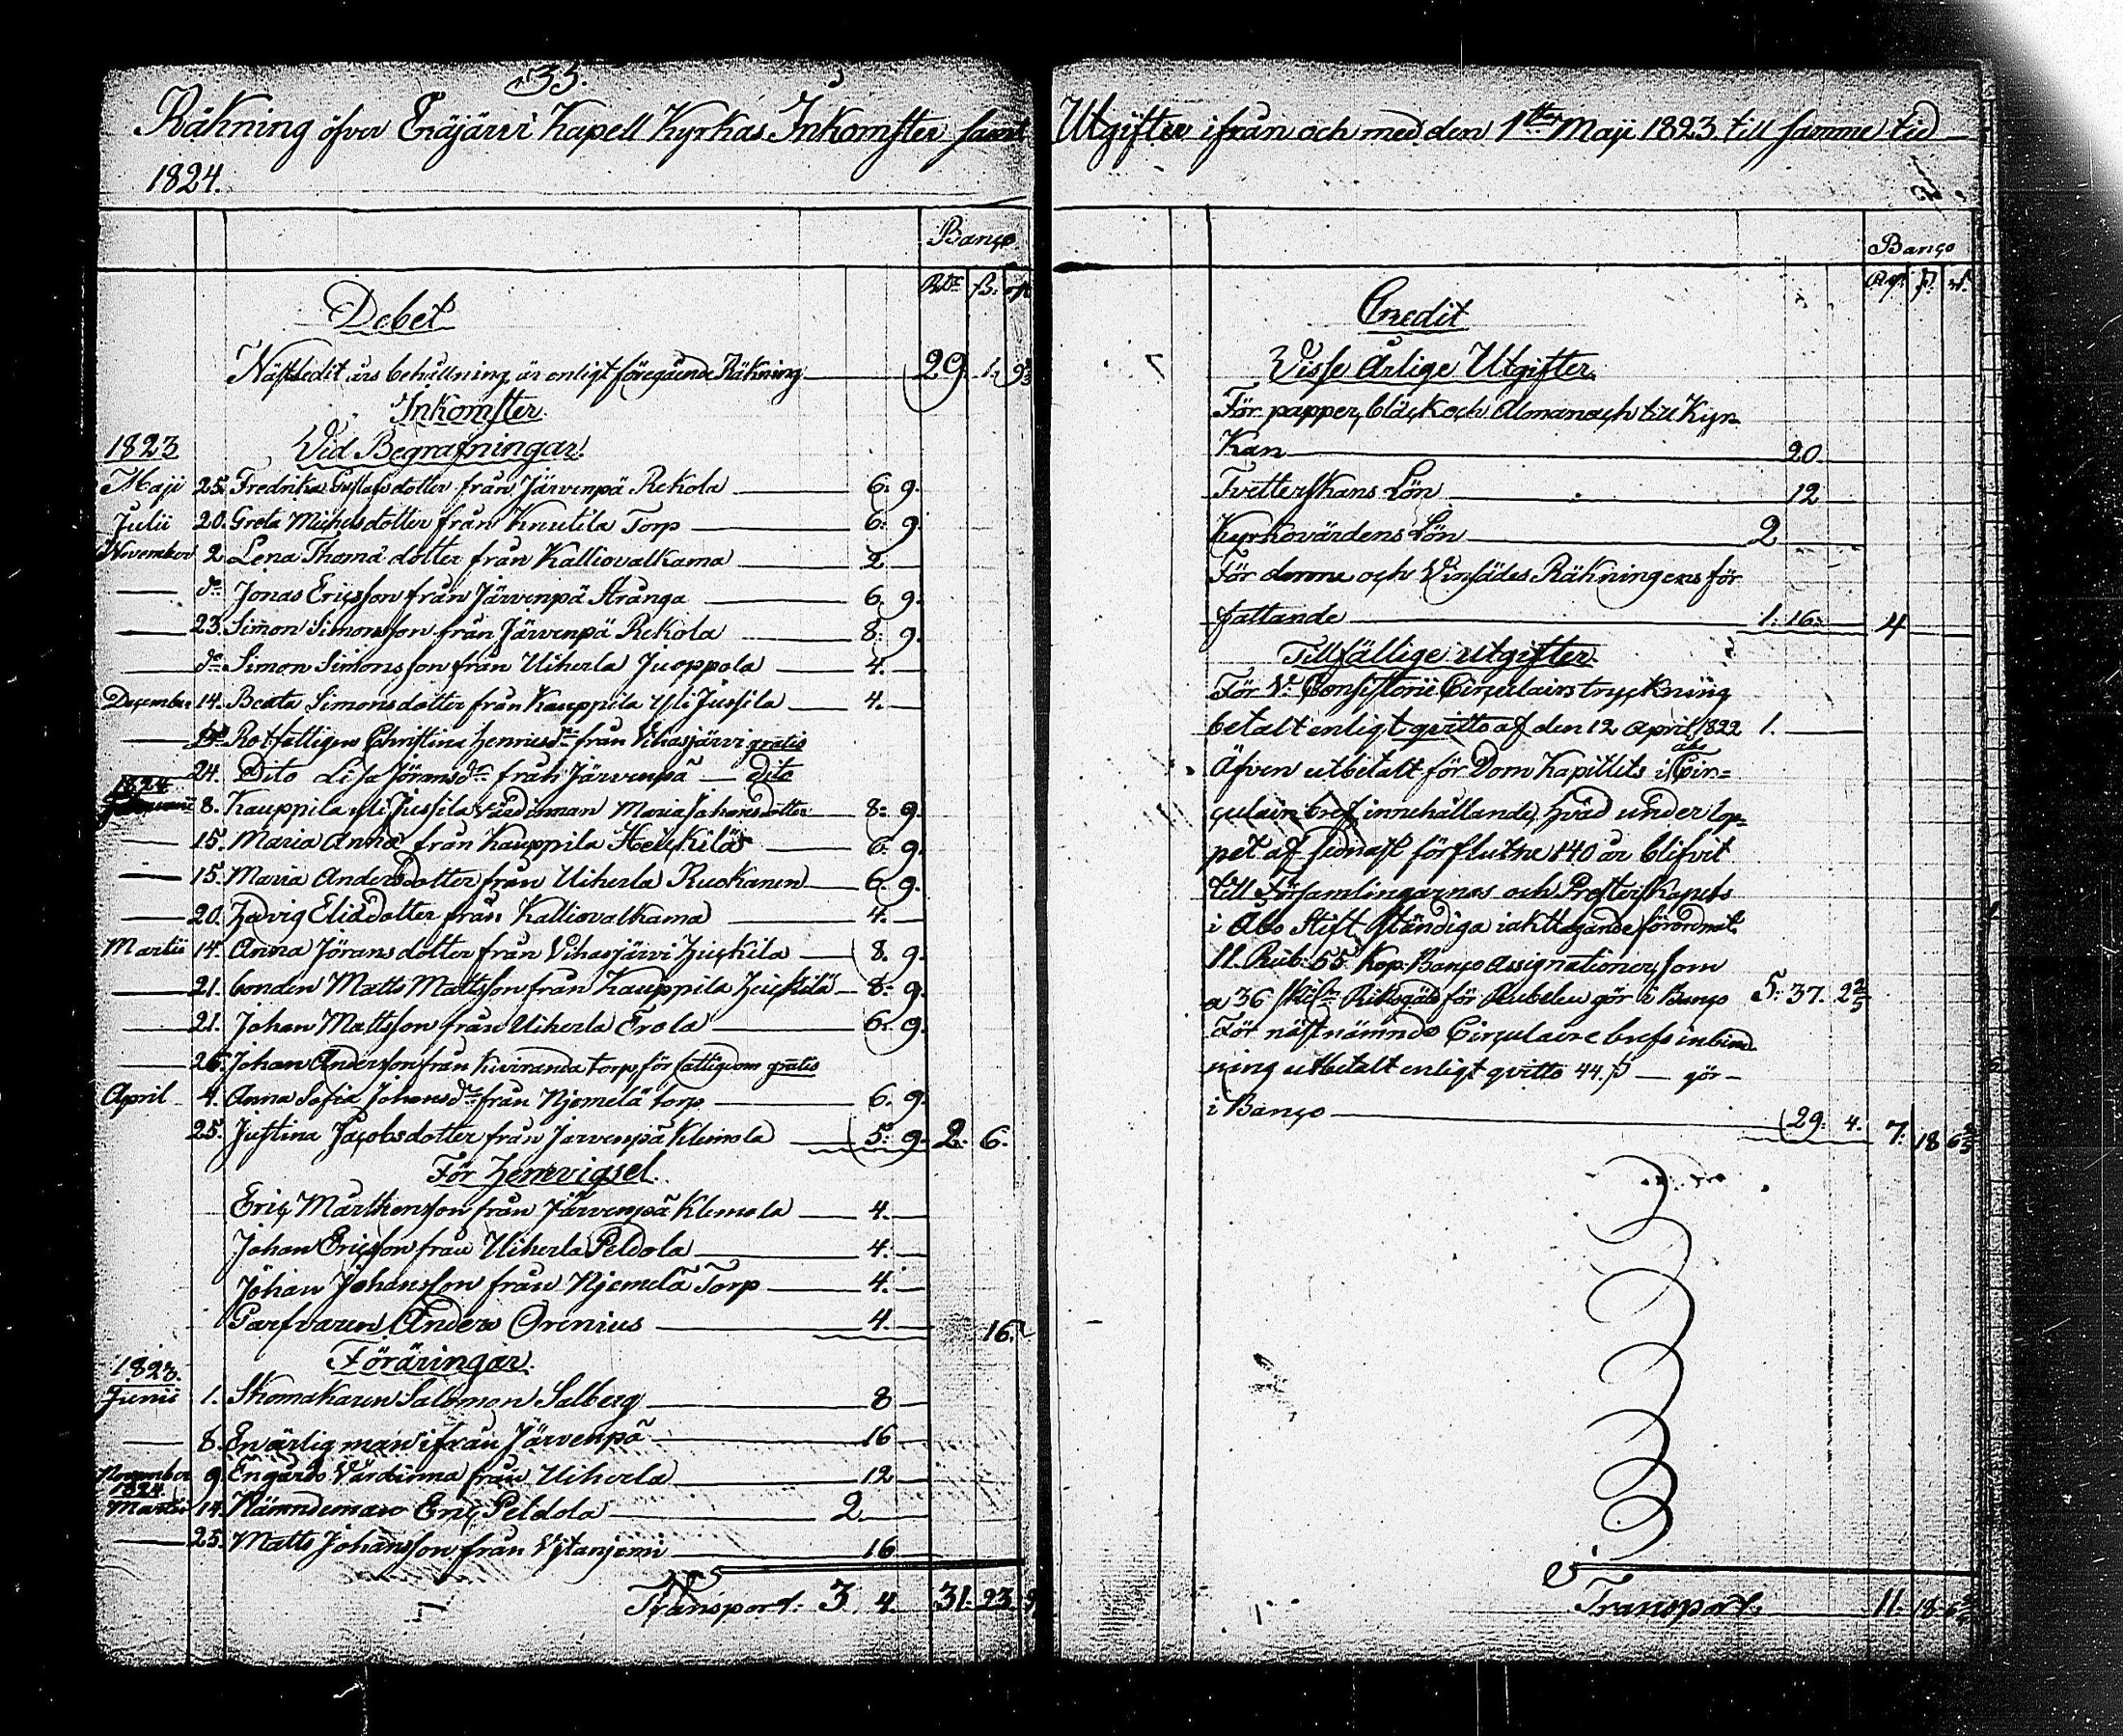 33.
Räkning öfver Enäjärvi Kapell Kyrkas Inkomster samt
1824.
Banço
Rdr ß. rst
Debet
Nästledit års behållning är enligt föregående Räkning 29. 1. 9
Inkomster.
1823 Vid Begrafningar.
Maji 25. Fredrika Gustafsdotter från Järvenpä Rekola 6. 9.
Julii 20. Greta Michelsdotter från Knutila Torp 6. 9.
November 2. Lena Thomädotter från Kalliovalkama 2
do Jonas Ericsson från Järvenpä Stränga 6. 9.
23. Simon Simonsson från Järvenpä Rekola 8. 9.
do Simon Simonsson från Uiherla Juoppola 4.
December 14. Beata Simonsdotter från Kauppila Yli Jussila 4.
Rotfattigen Christina Henricsdr från Vihasjärvi gratis
24. Dito Lisa Jöransdr från Järvenpä dito
1824
8. Kauppila yli Jussila värdinnan Maria Johansdotter 8. 9.
15. Maria Anna från Kauppila Heickilä 6. 9.
15. Maria Andersdotter från Uiherla Ruokanen 6. 9.
20. Hedvig Eliædotter från Kalliovalkama 4.
Martii 14. Anna Jöransdotter från Vihasjärvi Heickila 8. 9.
21. bonden Matts Mattsson från Kauppila Heickilä 8. 9.
21. Johan Mattsson från Uiherla Erola 6. 9.
26. Johan Andersson från Kiviranda torp för fattigdom gratis
April 4. Anna Sofia Johansdr från Njemelä torp 6. 9.
25. Justina Jacobsdotter från Jarvenpä Klemola 5. 9. 2. 6.
För Hemvigsel.
Eric Mårthensson från Järvenpä Klemola 4.
Johan Ericsson från Uiherla Peldola 4.
Johan Johansson från Njemelä Torp 4.
Garfvaren Anders Orenius 4. 16.
1823. Föräringar.
Junii 1. Skomakaren Salomon Salberg 8
8. En ärlig man ifrån Järvenpä 16
November 9. En gårds Värdinna från Uiherla 12
1824
Martii 14. Nämndeman Eric Peldola 2
25. Matts Johansson från Vjtanjemi 16
Transport. 3. 4. 31. 23. 9
Utgifter ifrån och med den 1sta Maji 1823 till samme tid
Banço
Credit
Visse Årlige Utgifter.
För papper, bläck och Almanach till Kyr-
kan 20.
Tvetterskans Lön 12
Kyrkovärdens Lön 2
För denne och Vinsädes Räkningens för
fattande 1. 16. 4
Tillfällige utgifter.
För V. Consistorii Circulairs tryckning
betalt enligt qvitto af den 12 April 1822 1.
Äfven utbetalt för Dom Kapittlets i åbo Cir-
culair bref innehållande, hvad under lop-
pet af sednast förflutne 140 år blifvit
till Församlingarnas och Presterskapets
i Åbo Stift ständiga iakttagande förordnat.
11. Rub. 55 Kop. Banço Assignationer, som
a 36 skr Riksgäld för Rubeln gör i Banço 5. 37. 2 2/5
För nästnämnde Circulaire brefs inbind
ning utbetalt enligt qvitto 44. ß gör
i Banço 29. 4. 7. 18 6 2/5
Transport. 11. 18. 6 2/5